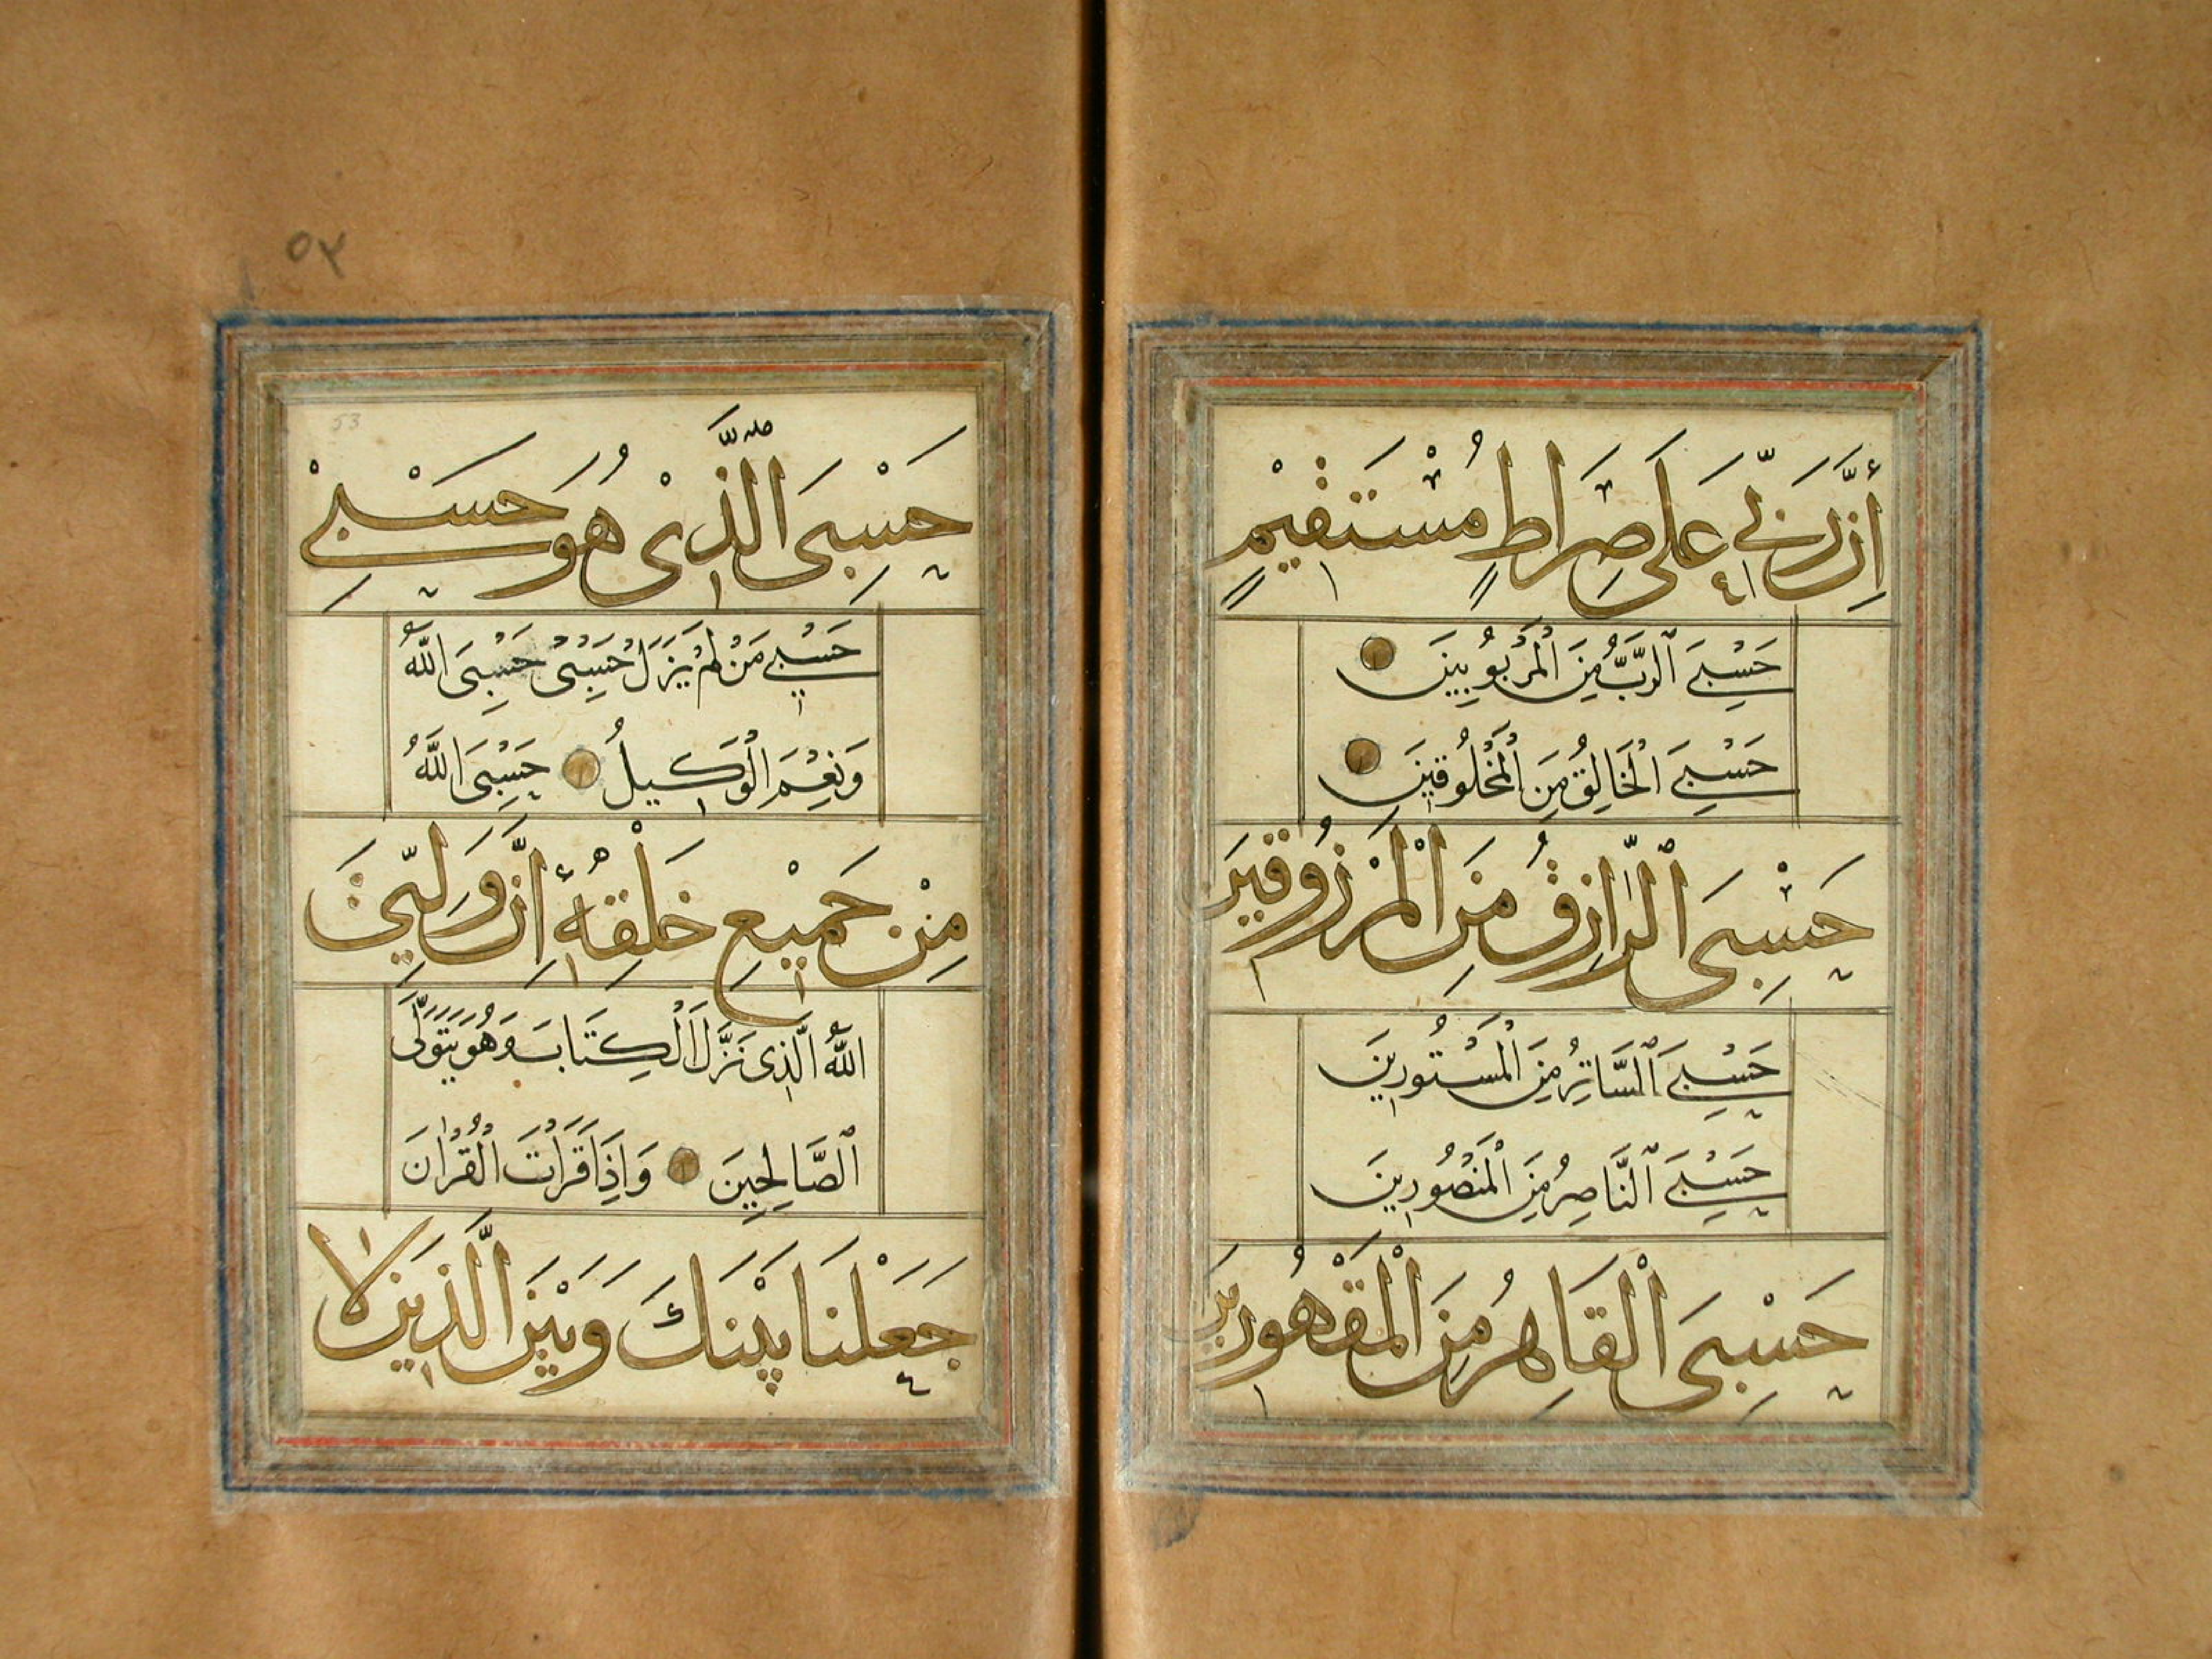 إِنَّ رَبِّي عَلَى صِرَاطٍ مُسْتَقِيمٍ
حَسْبِيَ ٱلرَّبُّ مِنَ الْمَرْبُوبِينَ
حَسْبِيَ الْخَالِقُ مِنَ الْمَخْلُوقِينَ
حَسْبِيَ ٱلرَّازِقُ مِنَ الْمَرْزُوقِينَ
حَسْبِيَ ٱلسَّاتِرُ مِنَ الْمَسْتُورِينَ
حَسْبِيَ ٱلنَّاصِرُ مِنَ الْمَنْصُورِينَ
حَسْبِيَ الْقَاهِرُ مِنَ الْمَقْهُورِينَ
٥٣
53
حَسْبِيَ الَّذِي هُوَ حَسْبِي
حَسْبِي مَنْ لَمْ يَزَلْ حَسْبِي حَسْبِيَ اللَّهُ
وَنِعْمَ الْوَكِيلُ حَسْبِيَ اللَّهُ
مِنْ جَمِيعِ خَلْقِهِ إِنَّ وَلِيِّيَ
اللَّهُ الَّذِي نَزَّلَ الْكِتَابَ وَهُوَ يَتَوَلَّى
ٱلصَّالِحِينَ وَإِذَا قَرَأْتَ الْقُرْآنَ
جَعَلْنَا بَيْنَكَ وَبَيْنَ الَّذِينَ لَا